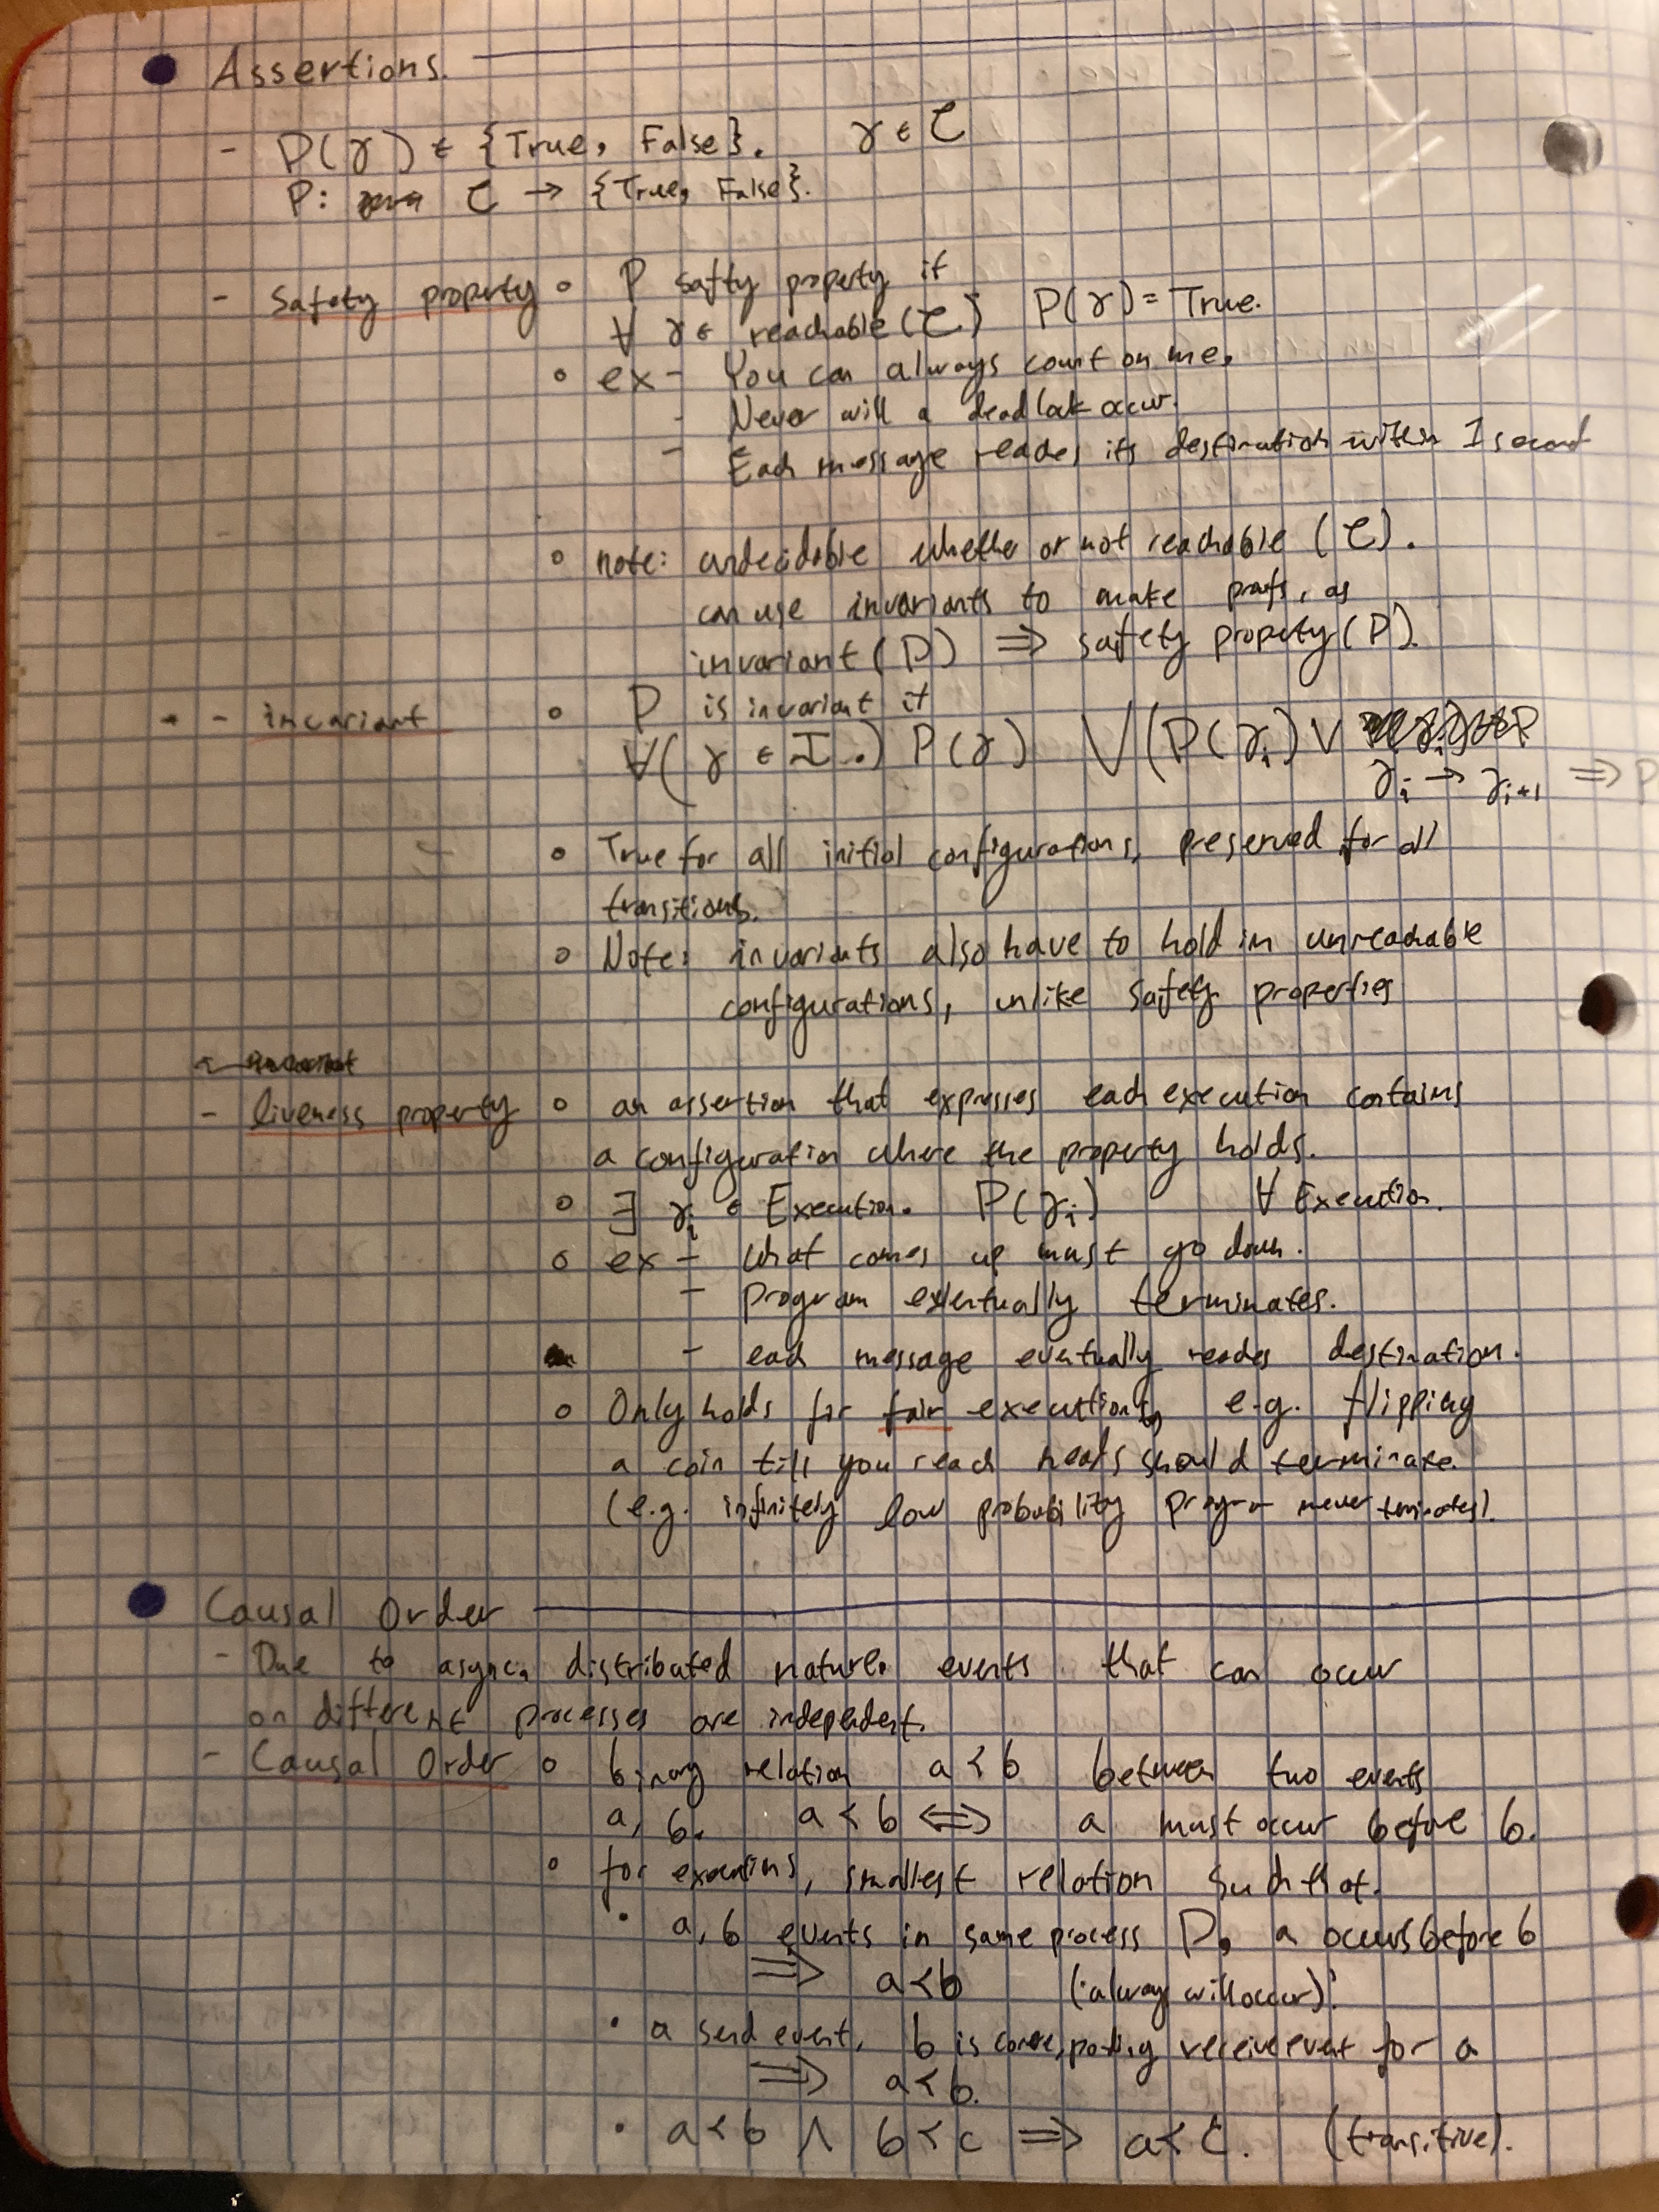 Assertions.
- P(γ) ∈ {True, False}. γ ∈ C
P: C → {True, False}.
- Safety property ∘ P safty property if
∀ γ ∈ reachable (C) P(γ) = True.
∘ ex - You can always count on me.
- Never will a deadlock occur.
- Each message reaches its destination within 1 second
∘ note: undecidable whether or not reachable (C).
can use invariants to make proofs, as
invariant (P) ⟹ safety property (P).
- invariant ∘ P is invariant if
∀(γ ∈ I.) P(γ) ∨(P(γi) ∨
γi → γi+1 ⟹ P
∘ True for all initial configurations, preserved for all
transitions.
∘ Note: invariants also have to hold in unreachable
configurations, unlike safety properties
- liveness property ∘ an assertion that expresses each execution contains
a configuration where the property holds.
∘ ∃ γi ∘ Execution. P(γi) ∀ Execution.
∘ ex - What comes up must go down.
- program eventually terminates.
- each message eventually reaches destination.
∘ Only holds for fair executions, e.g. flipping
a coin till you reach heads should terminate.
(e.g. infinitely low probability program never terminates).
Causal Order
- Due to async, distributed nature, events that can occur
on different processes are independent.
- Causal Order ∘ binary relation a < b between two events
a, b. a < b ⟺ a must occur before b.
∘ for executions, smallest relation such that.
· a, b events in same process P, a occurs before b
⟹ a < b (always will occur).
· a send event, b is corresponding receive event for a
⟹ a < b.
· a < b ∧ b < c ⟹ a < c. (transitive).